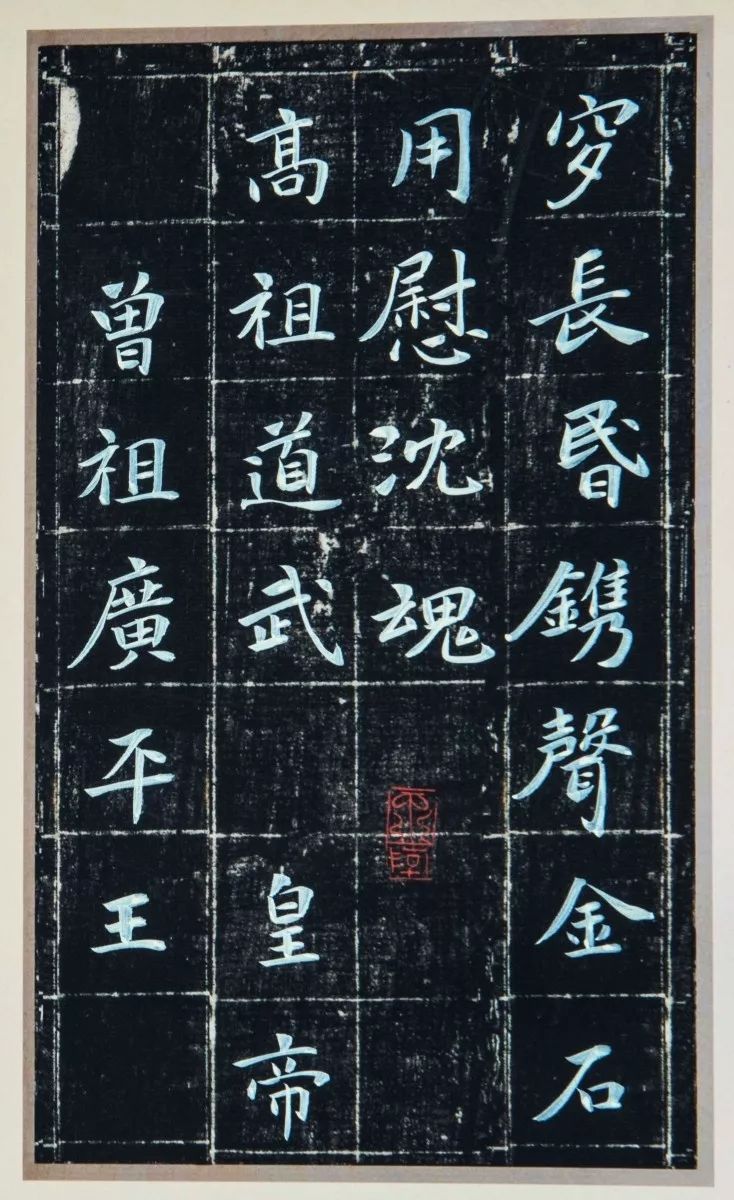 穸長昏鐫聲金石
用慰沈魂
高祖道武皇帝
曾祖廣平王